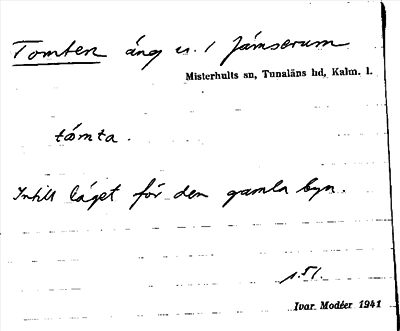 Tomten äng u. 1 Jämserum
Misterhults sn, Tunaläns hd, Kalm. l.
tómta.
Intill läget för den gamla byn.
s. 51.
Ivar Modéer 1941